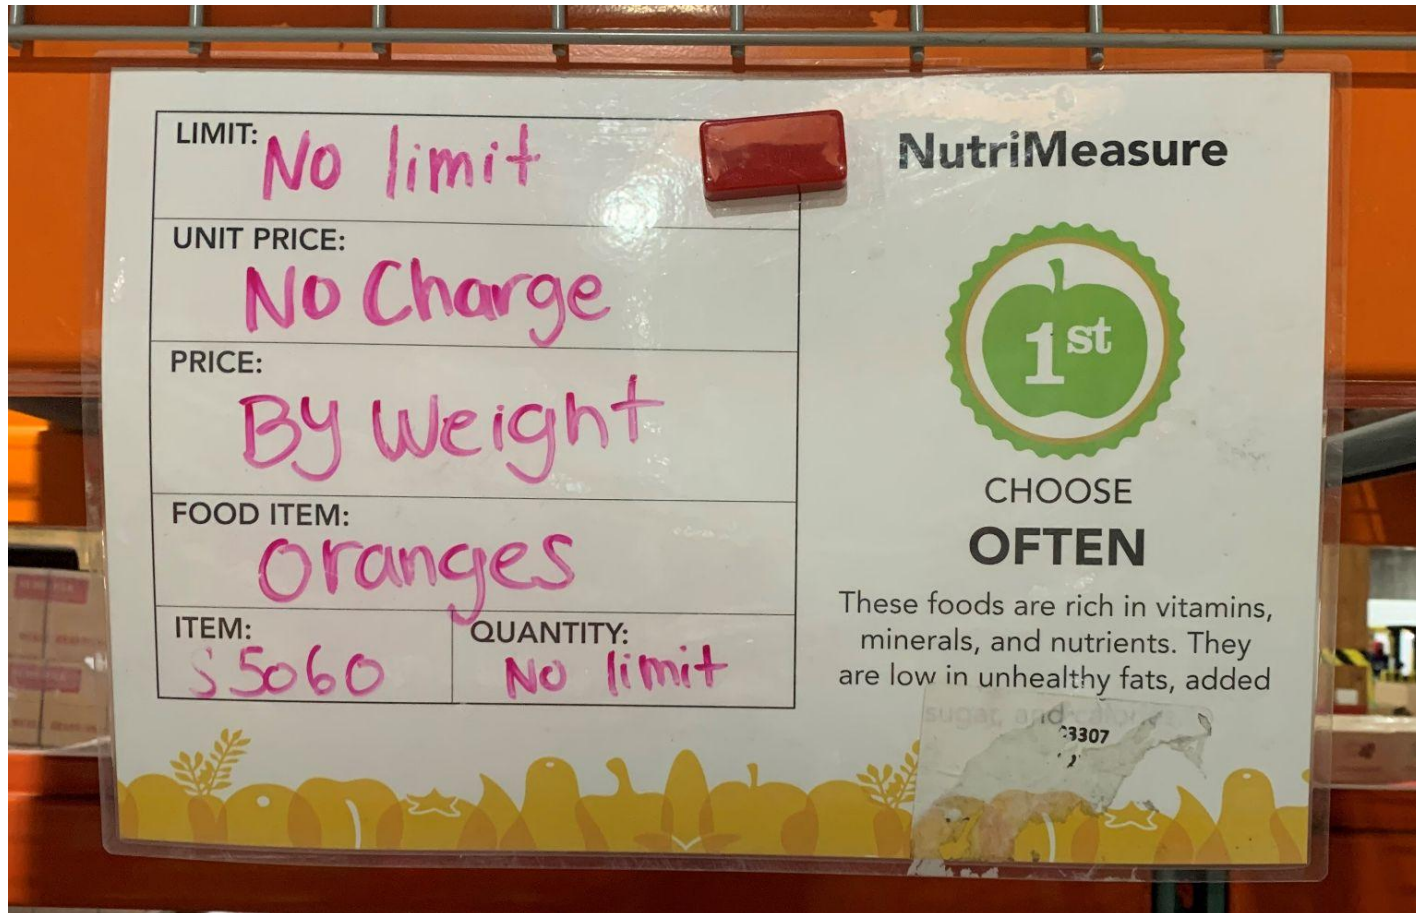 LIMIT: No limit
UNIT PRICE:
No Charge
PRICE:
By Weight
FOOD ITEM:
Oranges
ITEM:
S5060
QUANTITY:
No limit
NutriMeasure
1st
CHOOSE
OFTEN
These foods are rich in vitamins,
minerals, and nutrients. They
are low in unhealthy fats, added
sugar, and
3307